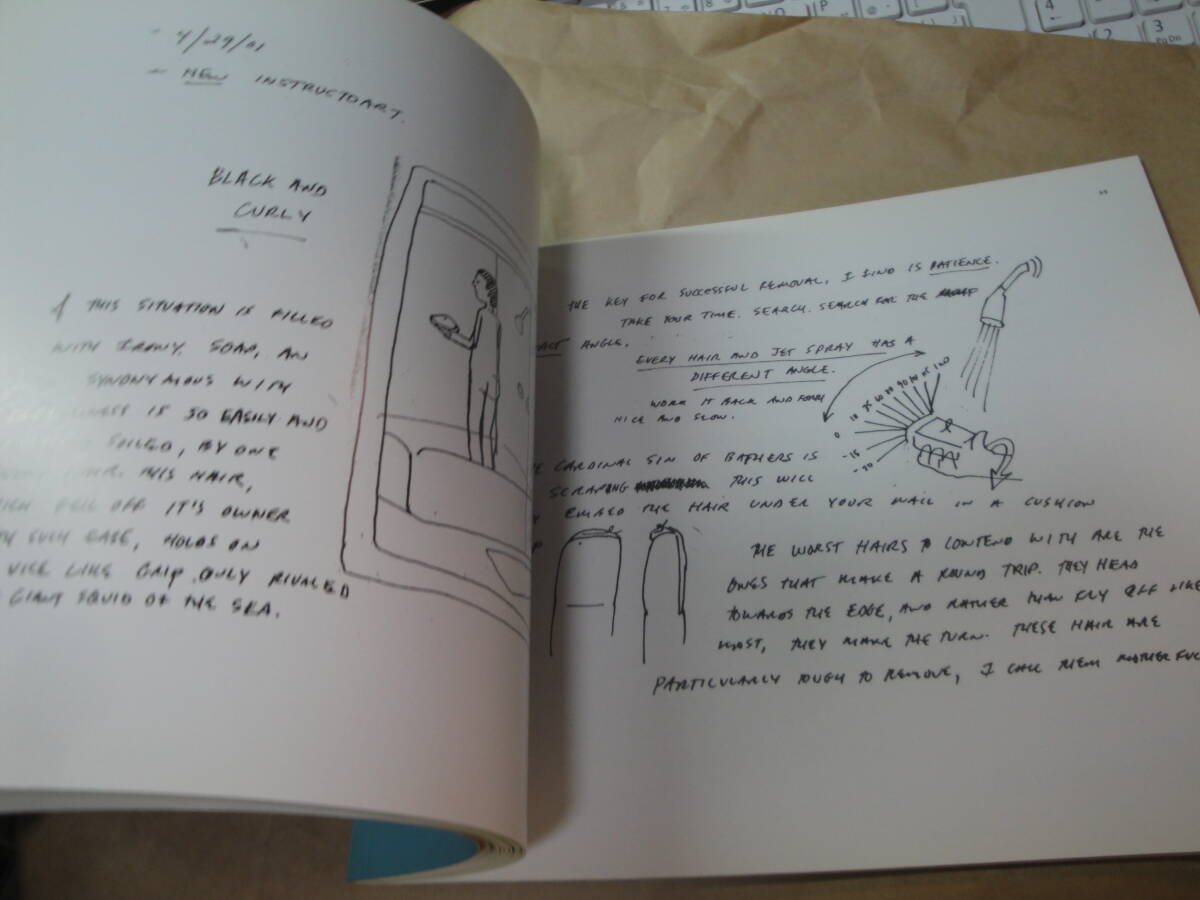 4/29/01
- NEW INSTRUCTOART.
BLACK AND
CURLY
THIS SITUATION IS FILLED
WITH IRONY. SOAP, AN
SYNONYMOUS WITH
IS SO EASILY AND
SOILED, BY ONE
HAIR. THIS HAIR,
FELL OFF IT'S OWNER
SUCH EASE, HOLDS ON
VICE LIKE GRIP ONLY RIVALED
GIANT SQUID OF THE SEA.
THE KEY FOR SUCCESSFUL REMOVAL, I FIND IS PATIENCE.
TAKE YOUR TIME. SEARCH. SEARCH FOR THE
ANGLE.
EVERY HAIR AND JET SPRAY HAS A
DIFFERENT ANGLE.
WORK IT BACK AND FORTH
NICE AND SLOW.
-20
-15
0
10
100
CARDINAL SIN OF BATHERS IS
SCRAPING THIS WILL
EMBED THE HAIR UNDER YOUR NAIL IN A CUSHION
THE WORST HAIRS TO CONTEND WITH ARE THE
ONES THAT MAKE A ROUND TRIP. THEY HEAD
TOWARDS THE EDGE, AND RATHER THAN FLY OFF LIKE
MOST, THEY MAKE THE TURN. THESE HAIR ARE
PARTICULARLY TOUGH TO REMOVE, I CALL THEM MOTHER FUC
4
2
3
PgDn
O
P